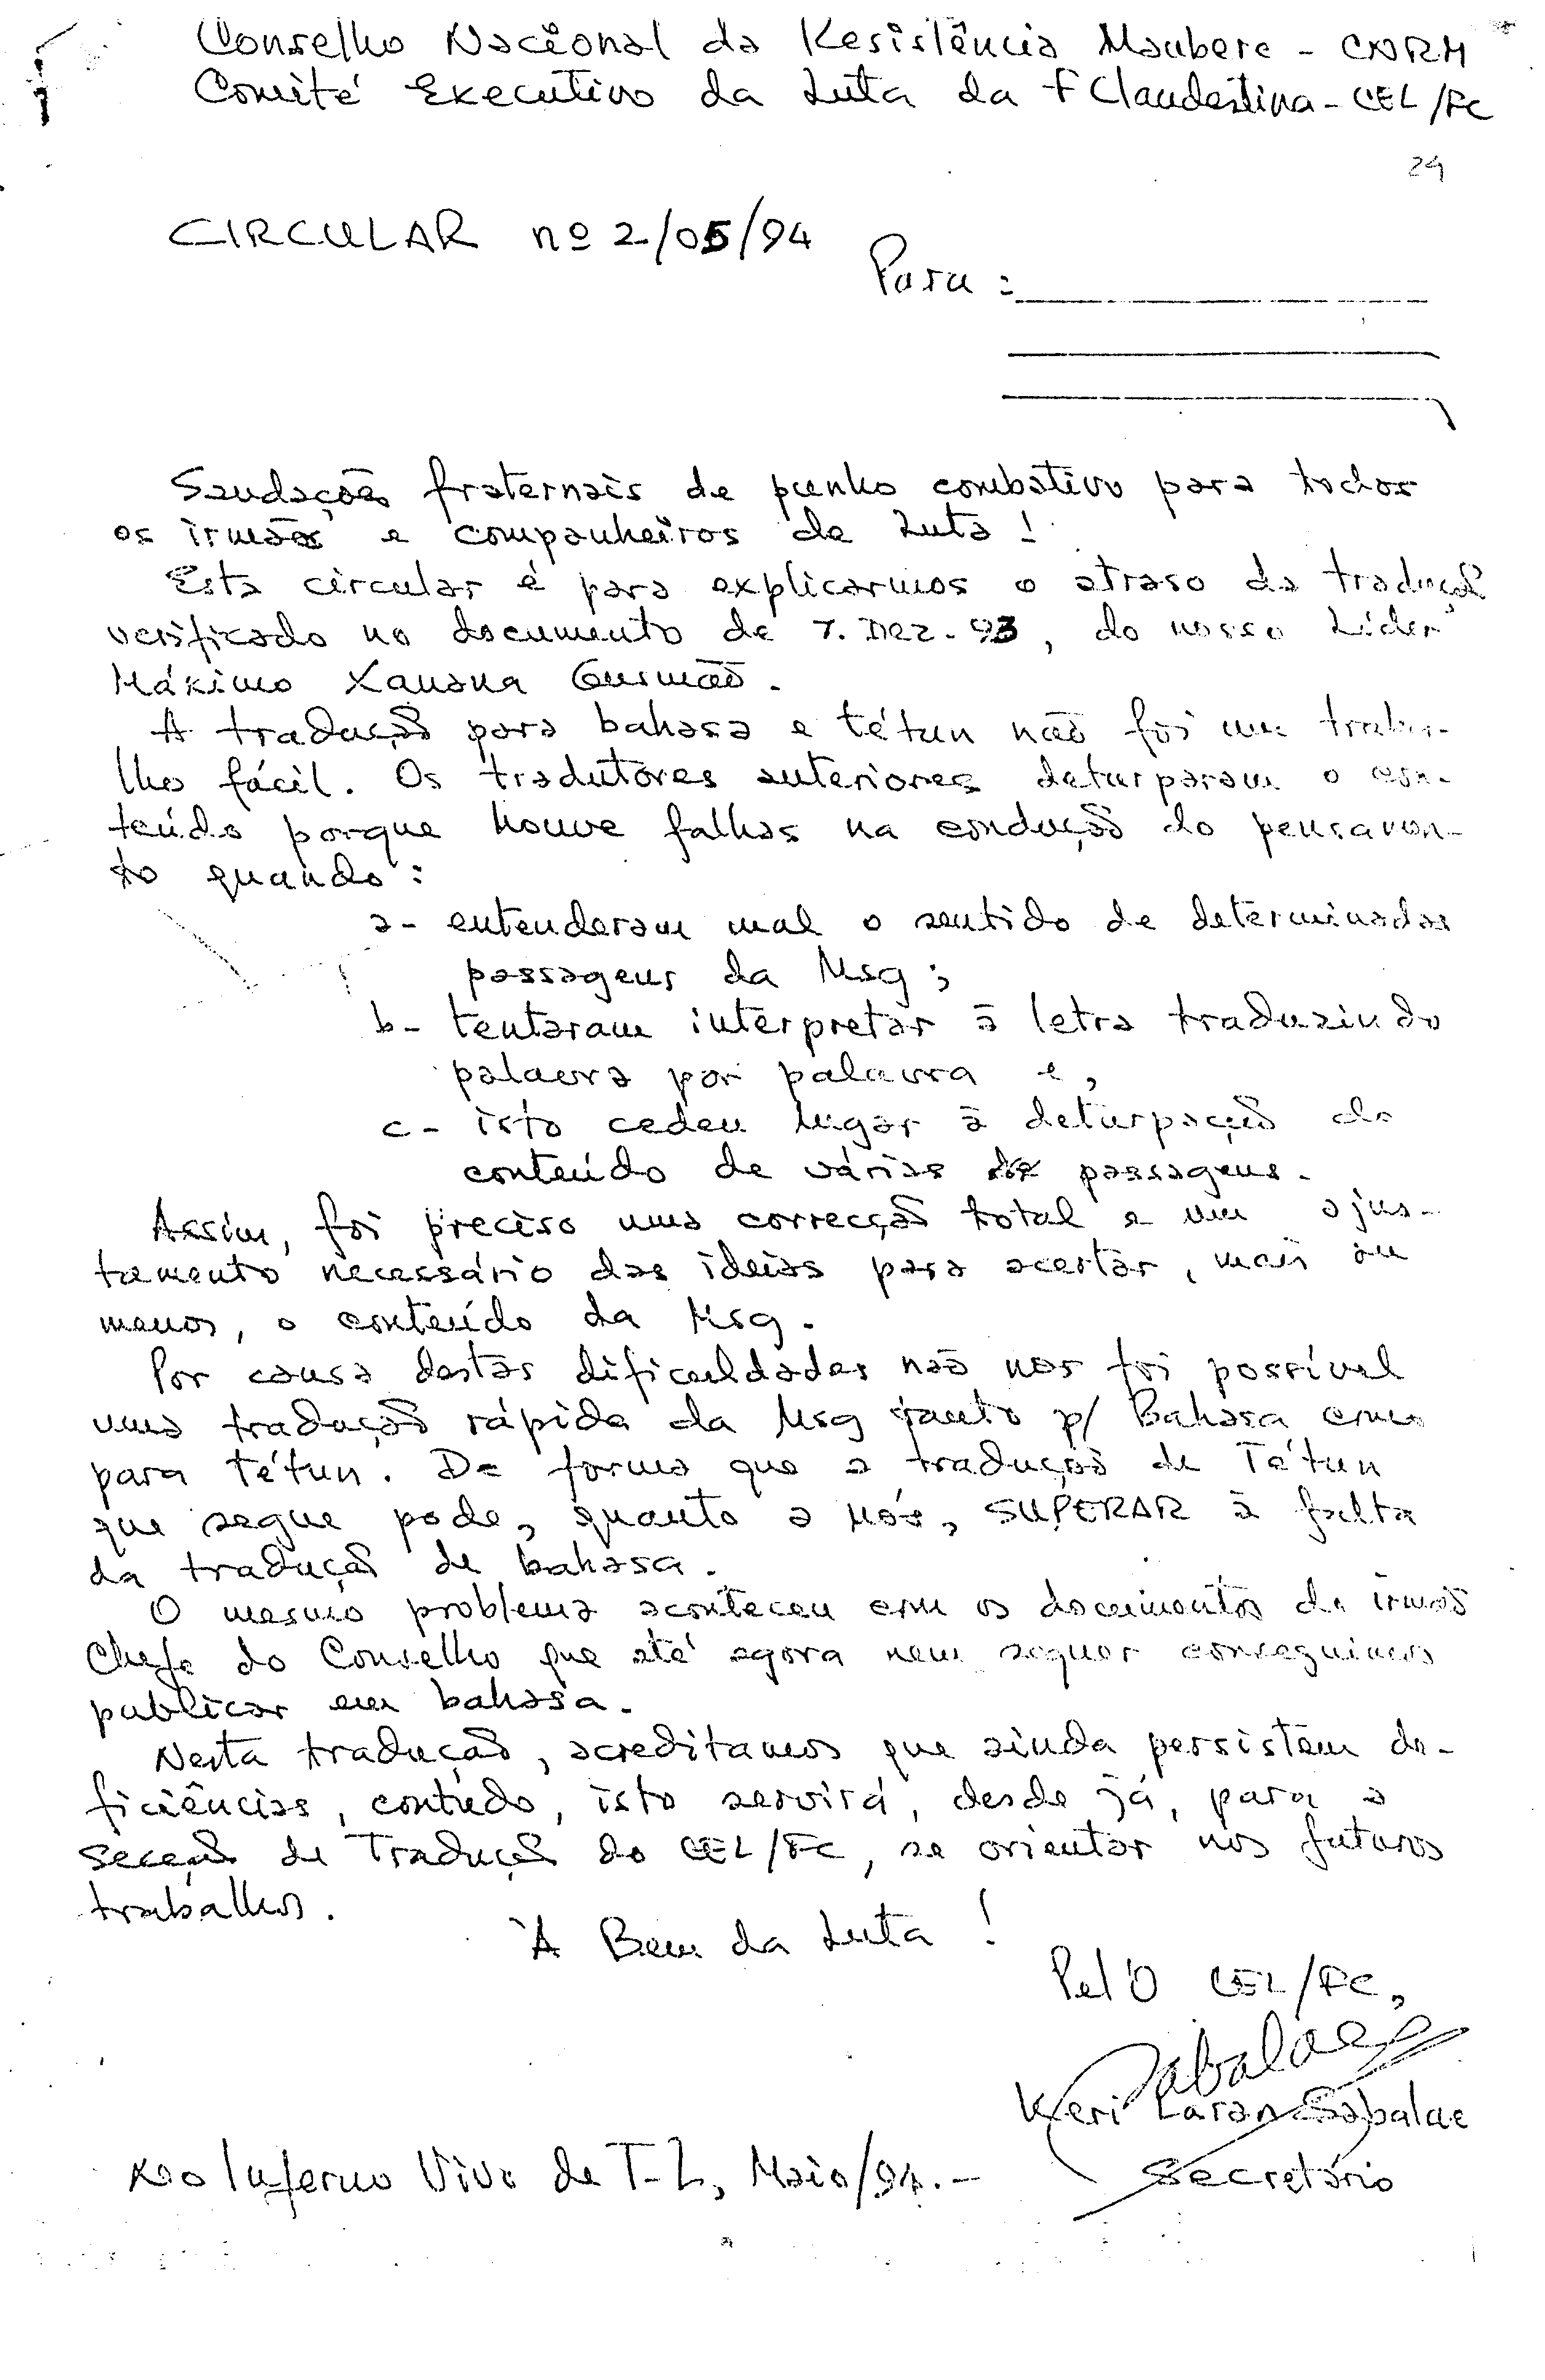 Conselho Nacional da Resistência Maubere - CNRM
Comité Executivo da Luta da F Clandestina - CEL/FC
29
CIRCULAR nº 2/05/94
Para :
Saudações fraternais de punho combativo para todos
os irmãos e companheiros da Luta !
Esta circular é para explicarmos o atraso da tradução
verificado no documento de 7. Dez. 93, do nosso Líder
Máximo Xanana Gusmão.
A tradução para bahasa e tétun não foi um traba-
lho fácil. Os tradutores anteriores deturparam o con-
teúdo porque houve falhas na condução do pensamen-
to quando :
a- entenderam mal o sentido de determinadas
passagens da Msg ;
b- tentaram interpretar à letra traduzindo
palavra por palavra e,
c- isto cedeu lugar à deturpação do
conteúdo de várias passagens.
Assim, foi preciso uma correcção total e um ajus-
tamento necessário das ideias para acertar, mais ou
menos, o conteúdo da Msg.
Por causa destas dificuldades não nos foi possível
uma tradução rápida da Msg tanto p/ Bahasa como
para tétun. De forma que a tradução de Tétun
que segue pode, quanto a nós, SUPERAR à falta
da tradução de bahasa.
O mesmo problema aconteceu com os documentos do irmão
Chefe do Conselho que até agora nem sequer conseguimos
publicar em bahasa.
Nesta tradução, acreditamos que ainda persistem de-
ficiências, contudo, isto servirá, desde já, para a
Secção de Tradução do CEL/FC, se orientar nos futuros
trabalhos.
À Bem da Luta !
Pel'O CEL/FC,
Sabalae
Keri Laran Sabalae
Secretário
No Inferno Vivo de T-L, Maio/94.-